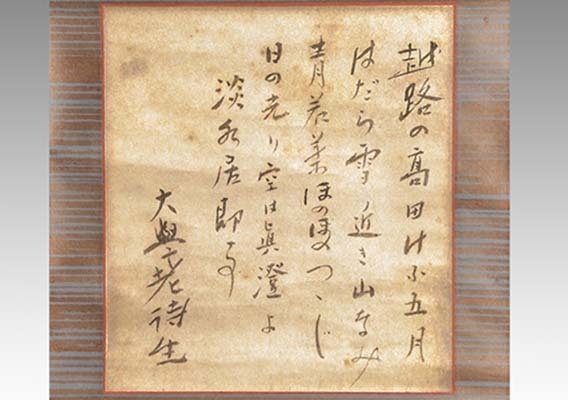 越路の高田けふ五月
はだら雪近き山なみ
青若葉ほのぼのつゝじ
日の光り空は眞澄よ
淡水居即事
大學老詩生